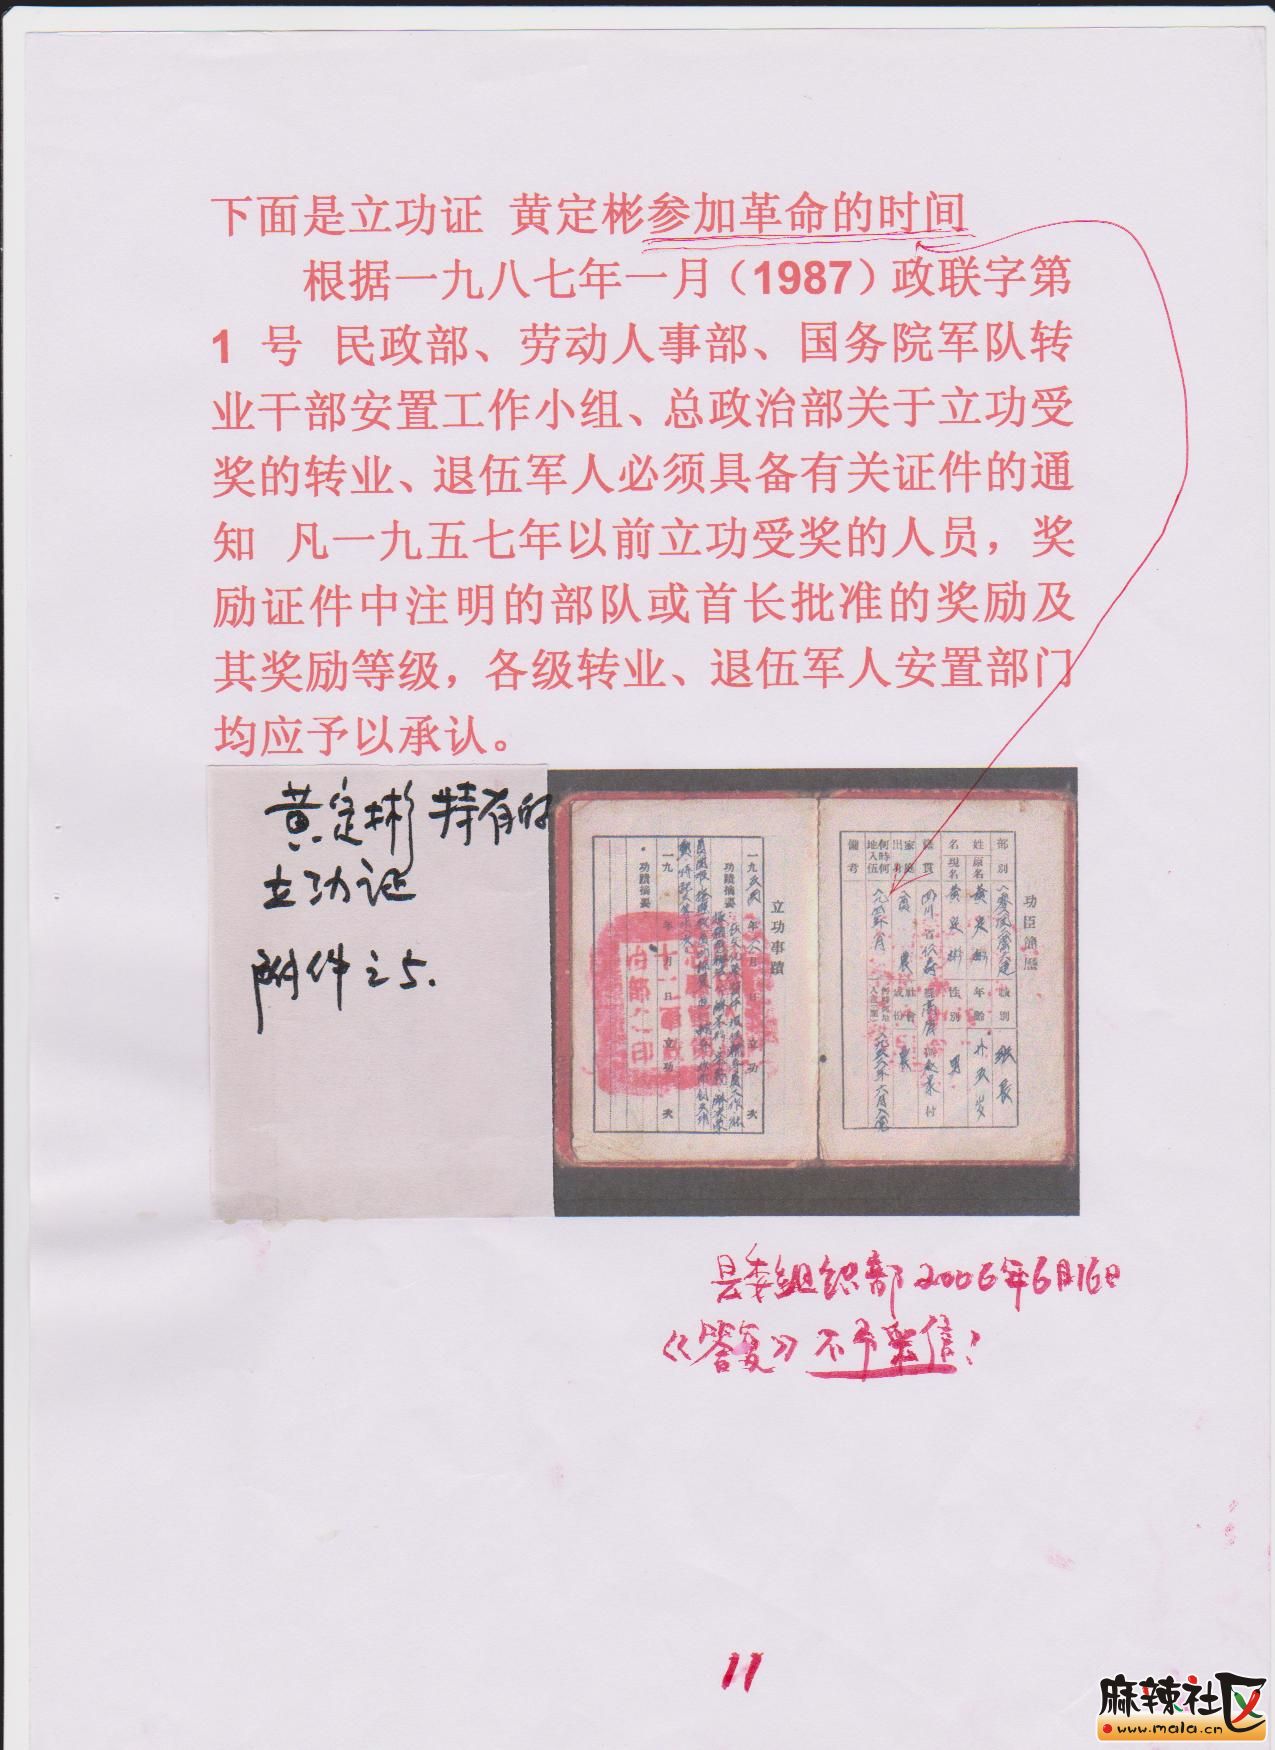 下面是立功证 黄定彬参加革命的时间
根据一九八七年一月（1987）政联字第
1 号 民政部、劳动人事部、国务院军队转
业干部安置工作小组、总政治部关于立功受
奖的转业、退伍军人必须具备有关证件的通
知 凡一九五七年以前立功受奖的人员，奖
励证件中注明的部队或首长批准的奖励及
其奖励等级，各级转业、退伍军人安置部门
均应予以承认。
黄定彬持有的
立功证
附件之5.
功臣簡歷
部別
職別
姓名
原名
黄定彬
現名
黄定彬
年齡
性別
男
籍貫
四川省
村
家庭出身
社會成份
農
何時何地入伍
備考
立功事蹟
立功 次
功蹟摘要
一九 年 月 日 立功 次
功蹟摘要
县委组织部2006年6月16日
《答复》不予采信？
11
麻辣社区
www.mala.cn